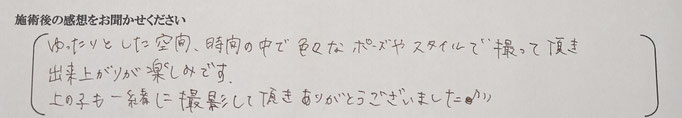 施術後の感想をお聞かせください
ゆったりとした空間、時間の中で色々なポーズやスタイルで撮って頂き
出来上がりが楽しみです.
上の子も一緒に撮影して頂きありがとうございました♪))